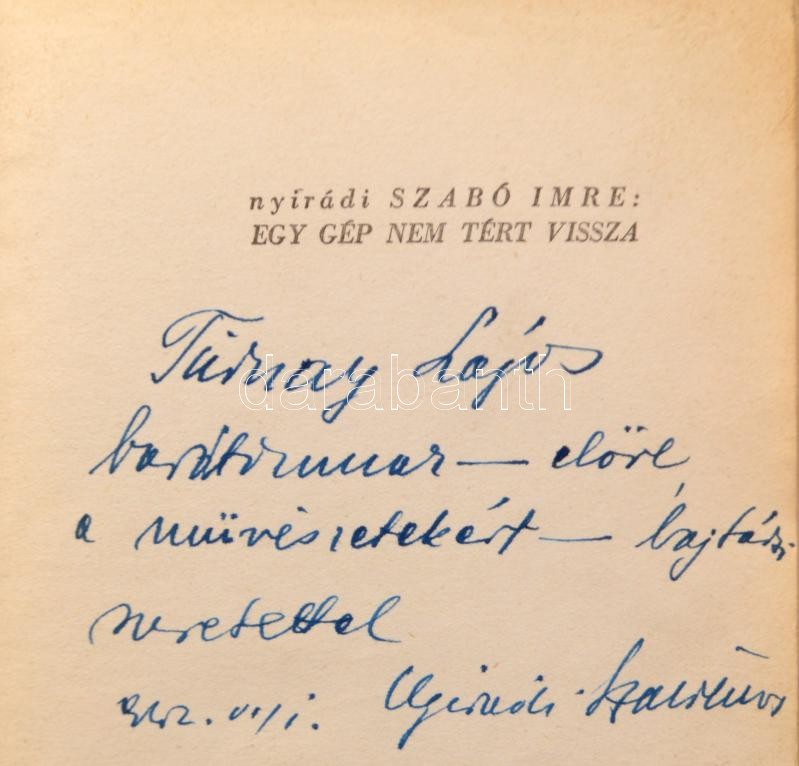 nyírádi SZABÓ IMRE:
EGY GÉP NEM TÉRT VISSZA
Lajos
darabanth
barátomnak — előre
a művészetekért — bajtársi
szeretettel
Nyirádi Szabó Imre